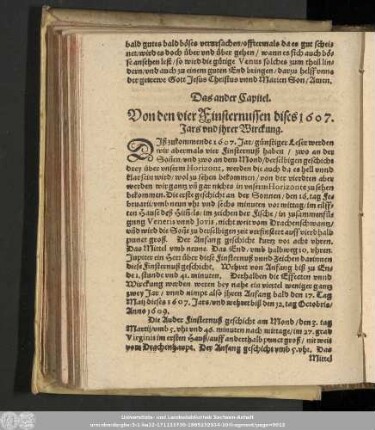 bald gutes bald böses verursachen / offtermals da es gut schei
net / wird es doch über vnd über gehen / wann es sich auch bös
se ansehen lest / so wird die gütige Venus solches zum theil lin
dern / vnd auch zu einem guten End bringen / darzu helff vnns
der gewere Gott Jesus Christus vnnd Marien Son / Amen.
Das ander Capitel.
Von den vier Finsternussen dises 1607.
Jars vnd ihrer Wirckung.
Diß zukommende 1607. Jar / günstiger Leser werden
wir abermals vier Finsternuß haben / zwo an der
Soñen / vnd zwo an dem Mond / derselbigen geschicht
drey über vnserm Horizont, werden die auch da es hell vnnd
klar sein wird / wol zu sehen bekommen / von der vierdten aber
werden wir gantz vñ gar nichts in vnserm Horizonte zu sehen
bekommen. Die erste geschicht an der Sonnen / den 16. tag Fe
bruarii / vmb neun vhr vnd sechs minuten vor mittag / im eilff
ten Hauß deß Him̃els / im zeichen der Fische / in zusammenfü
gung Veneris vnnd Jovis, nicht weit vom Drachenschwantz /
vnd wird die Soñe zu derselbigen zeit verfinstert auff vierdhalb
punct groß. Der Anfang geschicht kurtz vor acht vhren.
Das Mittel vmb neune. Das End / vmb halbweg 10. vhren.
Jupiter ein Herr über diese Finsternuß vnnd Zeichen darinnen
diese Finsternuß geschicht. Wehret von Anfang biß zu En
de 1. stunde vnd 41. minuten. Derhalben die Effecten vnnd
Wirckung werden weren bey nahe ein viertel weniger gantz
zwey Jar / vnnd nimpt also jhren Anfang bald den 17. Tag
Maij dieses 1607. Jars / vnd wehret biß den 12. tag Octobris /
Anno 1609.
Die Ander Finsternuß geschicht am Mond / den 3. tag
Martij / vmb 5. vhr vnd 46. minuten nach mittage / im 27. grad
Virginis im ersten Hauß / auff anderthalb punct groß / nit weit
vom Drachenhaupt. Der Anfang geschicht vmb 5. vhr. Das
Mittel
Universitäts- und Landesbibliothek Sachsen-Anhalt